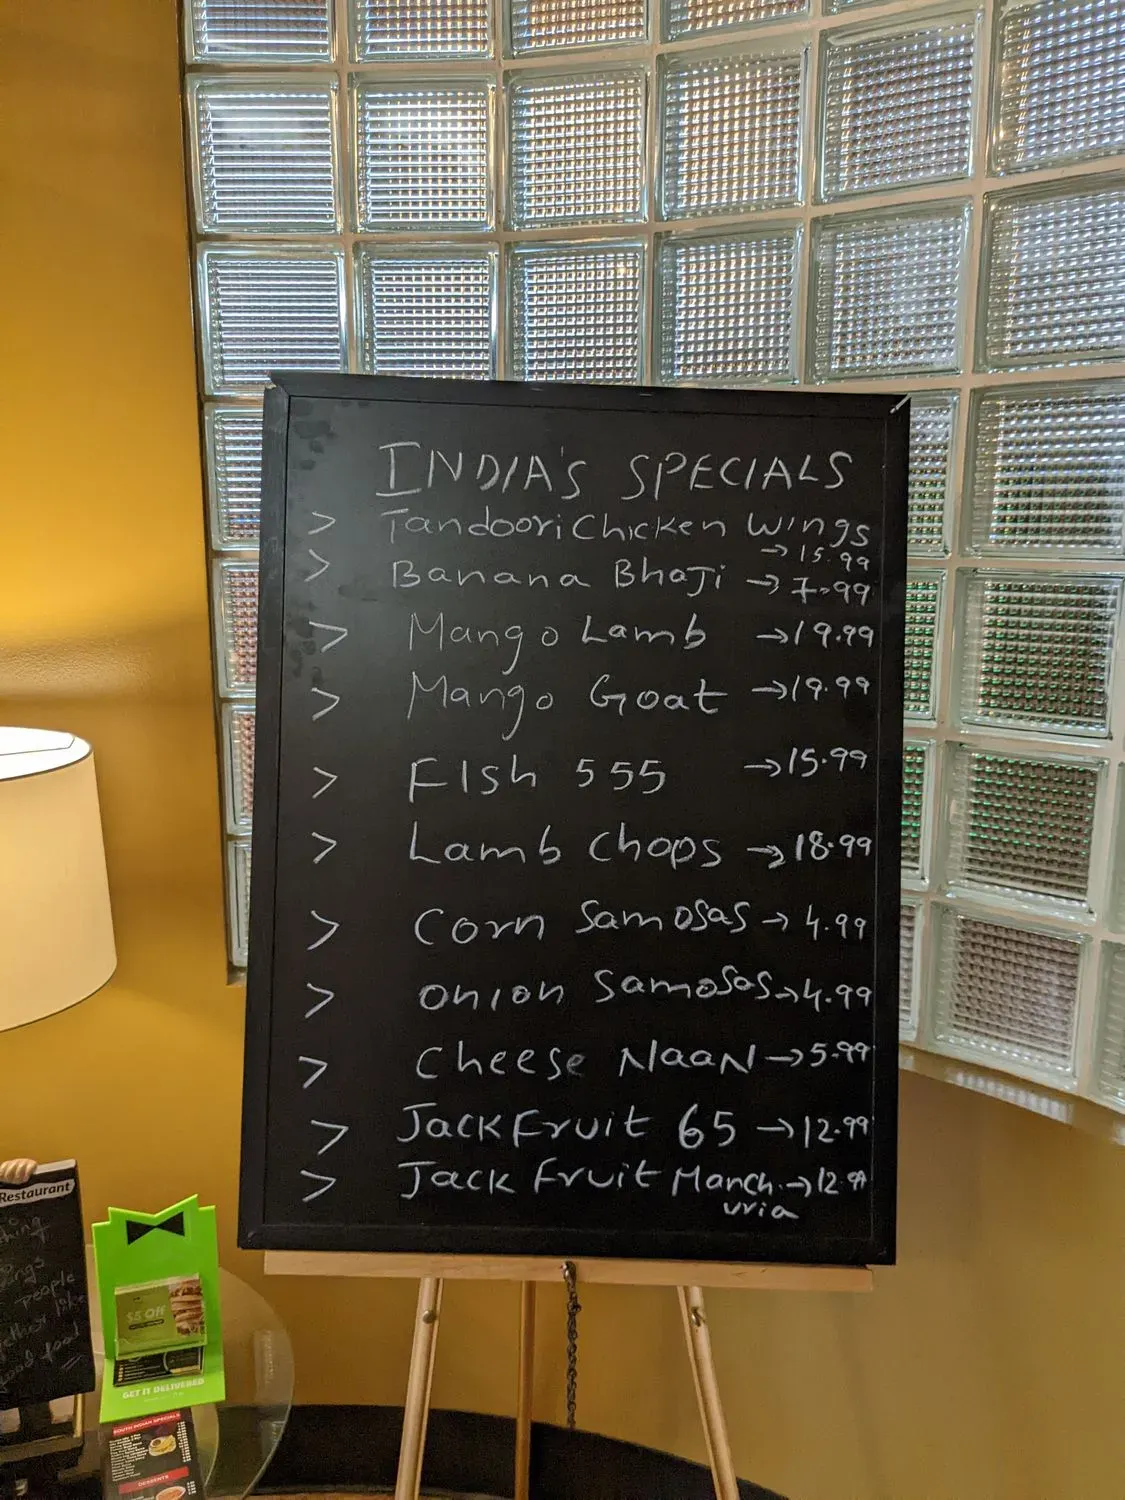 INDIA'S SPECIALS
> Tandoori Chicken Wings
→ 15.99
> Banana Bhaji → 7.99
> Mango Lamb → 19.99
> Mango Goat → 19.99
> Fish 555 → 15.99
> Lamb Chops → 18.99
> Corn Samosas → 4.99
> Onion Samosas → 4.99
> Cheese Naan → 5.99
> Jack Fruit 65 → 12.99
> Jack Fruit Manch. → 12.99
uria
Restaurant
people
food
$5 Off
GET IT DELIVERED
SOUTH INDIAN SPECIALS
DESSERTS